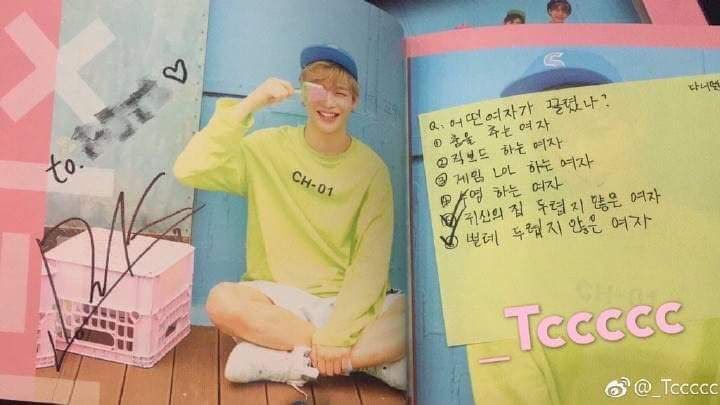 to.
CH-01
다니엘
Q. 어떤 여자가 끌렸나?
① 춤을 추는 여자
② 킥보드 하는 여자
③ 게임 LOL 하는 여자
④ 수영 하는 여자
⑤ 귀신의 집 두렵지 않은 여자
⑥ 벌레 두렵지 않은 여자
_Tccccc
@_Tccccc